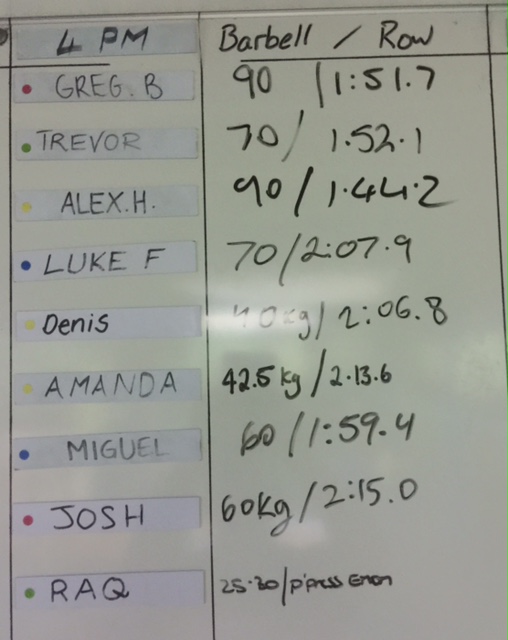 4 PM Barbell / Row
GREG. B 90 / 1:51.7
TREVOR 70 / 1.52.1
ALEX.H. 90 / 1.44.2
LUKE F 70 / 2:07.9
Denis / 2:06.8
AMANDA 42.5 kg / 2.13.6
MIGUEL 60 / 1:59.4
JOSH 60Kg / 2:15.0
RAQ 25-30 / p'press